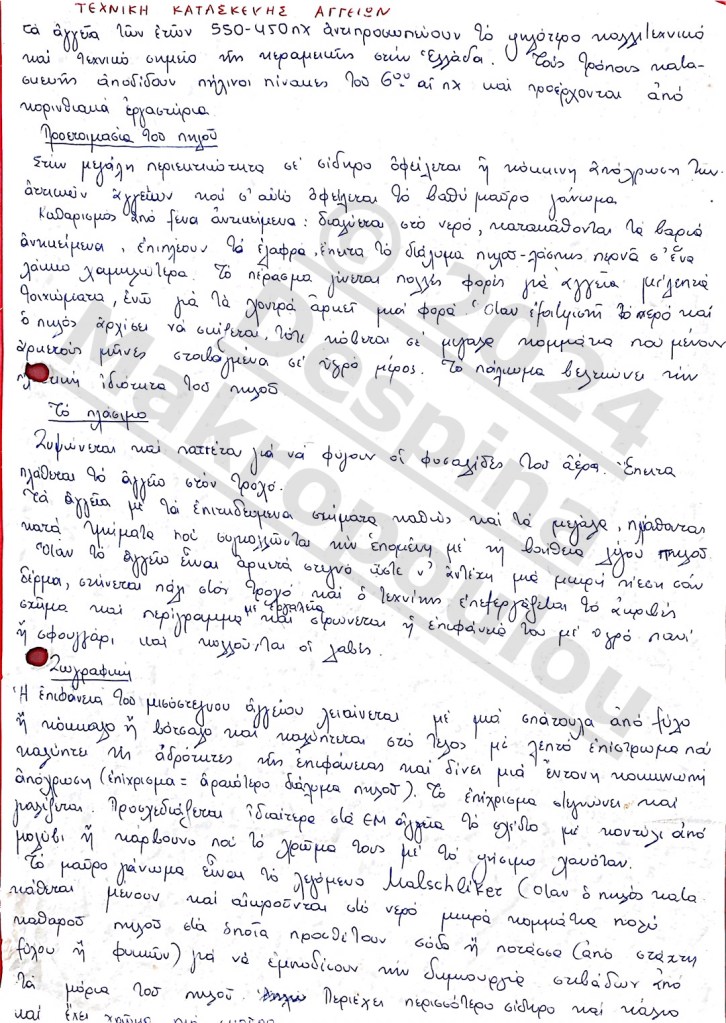 ΤΕΧΝΙΚΗ ΚΑΤΑΣΚΕΥΗΣ ΑΓΓΕΙΩΝ
τά ἀγγεῖα τῶν ἐτῶν 550-450 πχ ἀντιπροσωπεύουν τό ψηλότερο καλλιτεχνικό
καί τεχνικό σημεῖο τῆς κεραμεικῆς στήν Ἑλλάδα. Τούς τρόπους κατα-
σκευῆς ἀποδίδουν πήλινοι πίνακες τοῦ 6ου αἰ πχ καί προέρχονται ἀπό
κορινθιακά ἐργαστήρια
Προετοιμασία τοῦ πηλοῦ
Στήν μεγάλη περιεκτικότητα σέ σίδηρο ὀφείλεται ἡ κόκκινη ἀπόχρωση τῶν
ἀττικῶν ἀγγείων καί σ' αὐτό ὀφείλεται τό βαθύ μαῦρο γάνωμα
Καθαρισμός ἀπό ξένα ἀντικείμενα: διαλύεται στό νερό, κατακάθονται τά βαριά
ἀντικείμενα, ἐπιπλέουν τά ἐλαφρά, ἔπειτα τό διάλυμα πηλοῦ-λάσπης περνᾶ σ' ἕνα
λάκκο χαμηλώτερα. Τό πέρασμα γίνεται πολλές φορές γιά ἀγγεῖα μέ λεπτά
τοιχώματα, ἐνῶ γιά τά χοντρά ἀρκεῖ μιά φορά Ὅταν ἐξατμιστῆ τό νερό καί
ὁ πηλός ἀρχίσει νά σκίζεται, τότε κόβεται σέ μεγάλα κομμάτια πού μένουν
ἀρκετούς μῆνες στοιβαγμένα σέ ὑγρό μέρος. Τό πάλιωμα βελτιώνει τήν
ἰδιότητα τοῦ πηλοῦ
Τό πλάσιμο
Ζυμώνεται καί πατιέται γιά νά φύγουν οἱ φυσαλίδες τοῦ ἀέρα. Ἔπειτα
πλάθεται τό ἀγγεῖο στόν τροχό.
Τά ἀγγεῖα μέ τά ἐπιτηδευμένα σχήματα καθώς καί τά μεγάλα, πλάθονται
κατά τμήματα πού συγκολλῶνται τήν ἑπομένη μέ τή βοήθεια λίγου πηλοῦ
Ὅταν τό ἀγγεῖο εἶναι ἀρκετά στεγνό ὥστε ν' ἀντέχη μιά μικρή πίεση σάν
δέρμα, στήνεται πάλι στόν τροχό καί ὁ τεχνίτης ἐπεξεργάζεται τό ἀκριβές
σχῆμα καί περίγραμμα μέ ἐργαλεῖα καί στρώνεται ἡ ἐπιφάνειά του μέ ὑγρό πανί
ἤ σφουγγάρι καί κολλοῦνται οἱ λαβές.
Ζωγραφική
Ἡ ἐπιφάνεια τοῦ μισόστεγνου ἀγγείου λειαίνεται μέ μιά σπάτουλα ἀπό ξύλο
ἤ κόκκαλο ἤ βότσαλο καί καλύπτεται στό τέλος μέ λεπτό ἐπίστρωμα πού
καλύπτει τίς ἀδρότητες τῆς ἐπιφάνειας καί δίνει μιά ἔντονη κοκκινωπή
ἀπόχρωση (ἐπίχρισμα = ἀραιότερο διάλυμα πηλοῦ). Τό ἐπίχρισμα στεγνώνει καί
γυαλίζεται. Προσχεδιάζεται ἰδιαίτερα στά ΕΜ ἀγγεῖα τό σχέδιο μέ κοντύλι ἀπό
μολύβι ἤ κάρβουνο πού τό χρῶμα τους μέ τό ψήσιμο χανόταν.
Τό μαῦρο γάνωμα εἶναι τό λεγόμενο Malschliker (ὅταν ὁ πηλός κατα
κάθεται μένουν καί αἰωροῦνται στό νερό μικρά κομμάτια πολύ
καθαροῦ πηλοῦ στά ὁποῖα προσθέτουν σόδα ἤ ποτάσσα (ἀπό στάχτη
ξύλου ἤ φυκιῶν) γιά νά ἐμποδίσουν τήν δημιουργία στιβάδων ἀπό
τά μόρια τοῦ πηλοῦ. Περιέχει περισσότερο σίδηρο καί κάλιο
καί ἔχει χρῶμα πιό
© 2024
Despina
Makropoulou